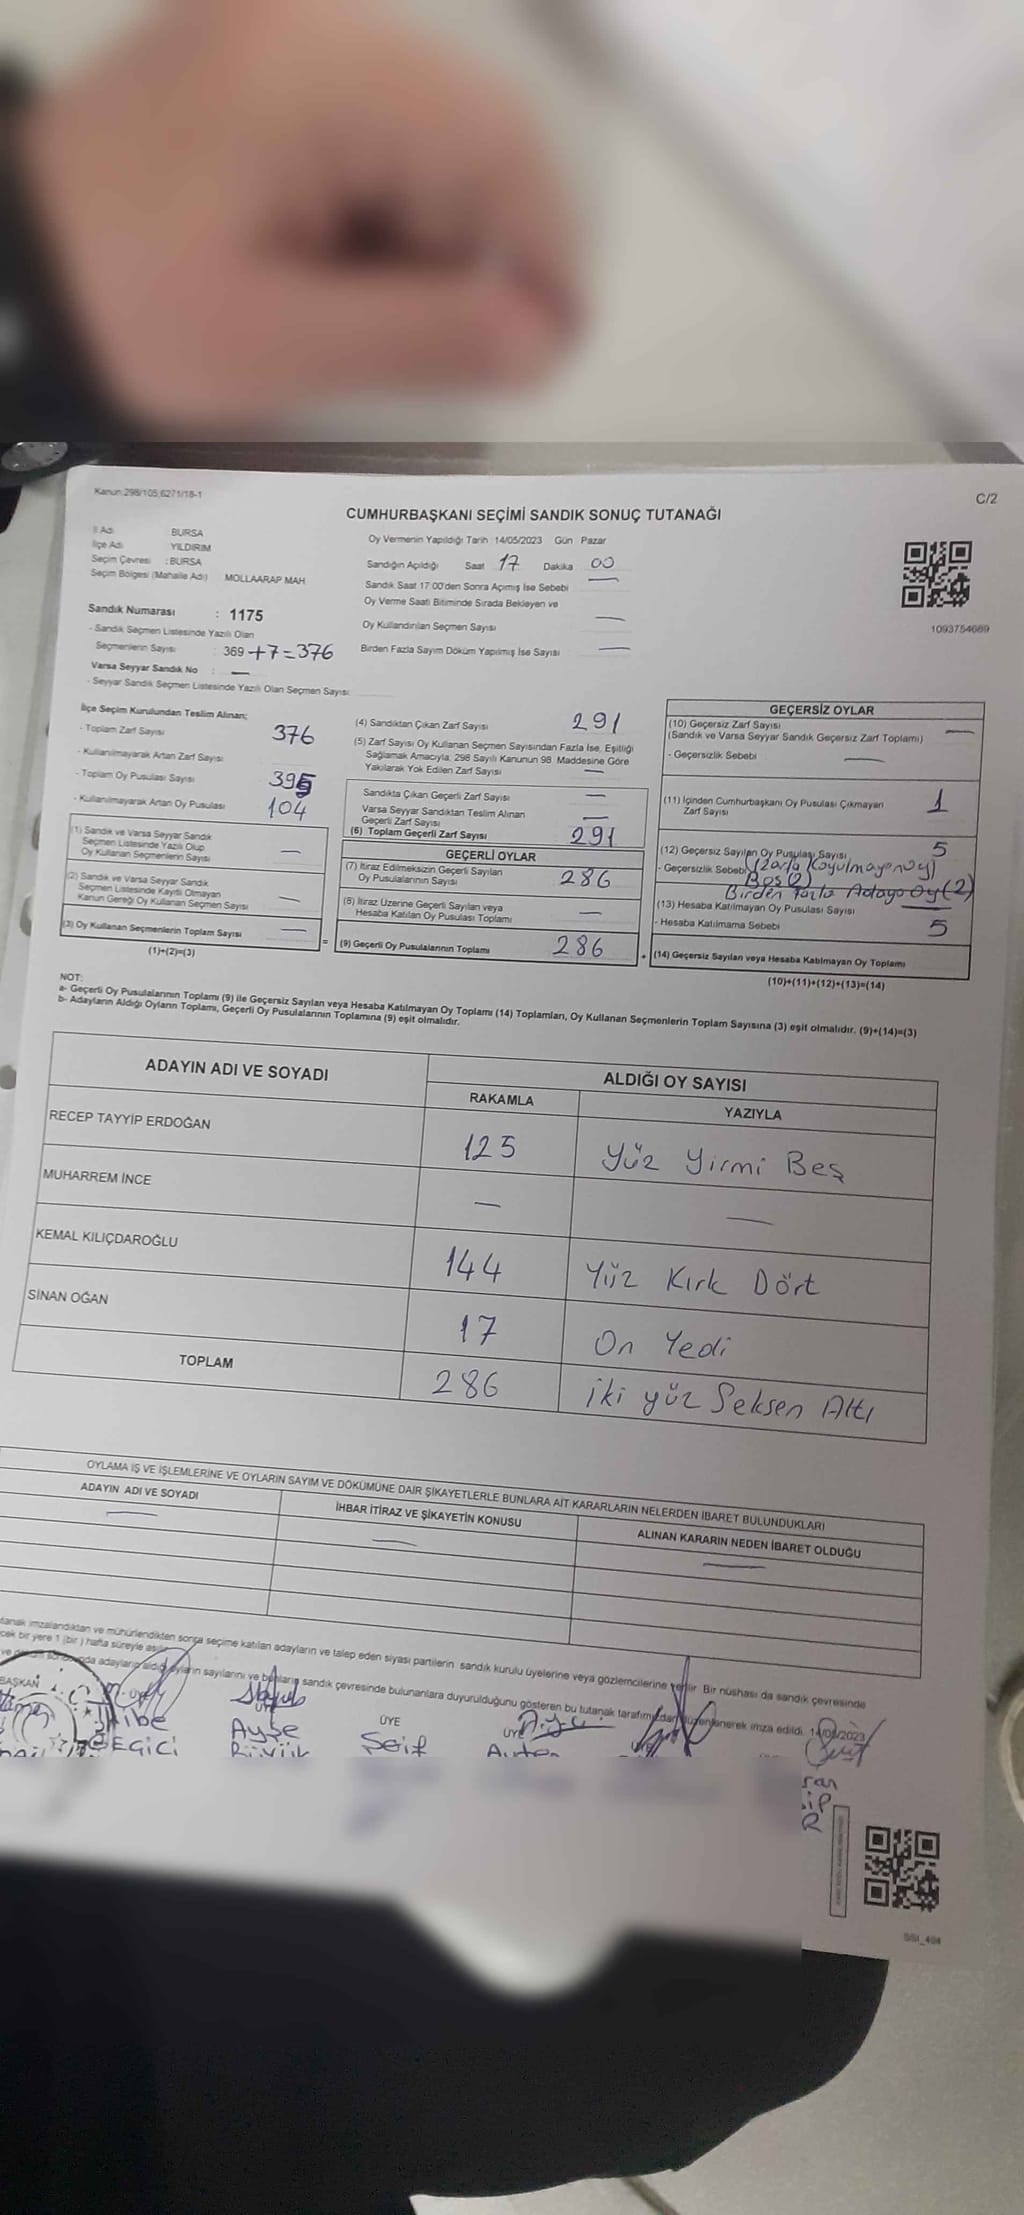 Kanun:298/105,6271/18-1
C/2
CUMHURBAŞKANI SEÇİMİ SANDIK SONUÇ TUTANAĞI
İl Adı BURSA
İlçe Adı YILDIRIM
Seçim Çevresi : BURSA
Seçim Bölgesi (Mahalle Adı) MOLLAARAP MAH
Sandık Numarası : 1175
- Sandık Seçmen Listesinde Yazılı Olan
Seçmenlerin Sayısı : 369 +7=376
Varsa Seyyar Sandık No : —
- Seyyar Sandık Seçmen Listesinde Yazılı Olan Seçmen Sayısı:
Oy Vermenin Yapıldığı Tarih 14/05/2023 Gün Pazar
Sandığın Açıldığı Saat 17 Dakika 00
Sandık Saat 17.00'den Sonra Açılmış İse Sebebi —
Oy Verme Saati Bitiminde Sırada Bekleyen ve
Oy Kullandırılan Seçmen Sayısı —
Birden Fazla Sayım Döküm Yapılmış İse Sayısı —
1093754669
İlçe Seçim Kurulundan Teslim Alınan;
- Toplam Zarf Sayısı 376
- Kullanılmayarak Artan Zarf Sayısı
- Toplam Oy Pusulası Sayısı 395
- Kullanılmayarak Artan Oy Pusulası 104
(1) Sandık ve Varsa Seyyar Sandık
Seçmen Listesinde Yazılı Olup
Oy Kullanan Seçmenlerin Sayısı —
(2) Sandık ve Varsa Seyyar Sandık
Seçmen Listesinde Kayıtlı Olmayan
Kanun Gereği Oy Kullanan Seçmen Sayısı —
(3) Oy Kullanan Seçmenlerin Toplam Sayısı —
(1)+(2)=(3)
(4) Sandıktan Çıkan Zarf Sayısı 291
(5) Zarf Sayısı Oy Kullanan Seçmen Sayısından Fazla İse, Eşitliği
Sağlamak Amacıyla, 298 Sayılı Kanunun 98. Maddesine Göre
Yakılarak Yok Edilen Zarf Sayısı —
Sandıkta Çıkan Geçerli Zarf Sayısı —
Varsa Seyyar Sandıktan Teslim Alınan
Geçerli Zarf Sayısı —
(6) Toplam Geçerli Zarf Sayısı 291
GEÇERLİ OYLAR
(7) İtiraz Edilmeksizin Geçerli Sayılan
Oy Pusulalarının Sayısı 286
(8) İtiraz Üzerine Geçerli Sayılan veya
Hesaba Katılan Oy Pusulası Toplamı —
= (9) Geçerli Oy Pusulalarının Toplamı 286
GEÇERSİZ OYLAR
(10) Geçersiz Zarf Sayısı
(Sandık ve Varsa Seyyar Sandık Geçersiz Zarf Toplamı) —
- Geçersizlik Sebebi —
(11) İçinden Cumhurbaşkanı Oy Pusulası Çıkmayan
Zarf Sayısı 1
(12) Geçersiz Sayılan Oy Pusulası Sayısı 5
- Geçersizlik Sebebi (Zarfa Koyulmayan Oy)
Boş(2)
Birden fazla Adaya Oy(2)
(13) Hesaba Katılmayan Oy Pusulası Sayısı —
- Hesaba Katılmama Sebebi 5
+ (14) Geçersiz Sayılan veya Hesaba Katılmayan Oy Toplamı
(10)+(11)+(12)+(13)=(14)
NOT:
a- Geçerli Oy Pusulalarının Toplamı (9) ile Geçersiz Sayılan veya Hesaba Katılmayan Oy Toplamı (14) Toplamları, Oy Kullanan Seçmenlerin Toplam Sayısına (3) eşit olmalıdır. (9)+(14)=(3)
b- Adayların Aldığı Oyların Toplamı, Geçerli Oy Pusulalarının Toplamına (9) eşit olmalıdır.
ADAYIN ADI VE SOYADI
ALDIĞI OY SAYISI
RAKAMLA YAZIYLA
RECEP TAYYİP ERDOĞAN 125 Yüz Yirmi Beş
MUHARREM İNCE — —
KEMAL KILIÇDAROĞLU 144 Yüz Kırk Dört
SİNAN OĞAN 17 On Yedi
TOPLAM 286 iki yüz Seksen Altı
OYLAMA İŞ VE İŞLEMLERİNE VE OYLARIN SAYIM VE DÖKÜMÜNE DAİR ŞİKAYETLERLE BUNLARA AİT KARARLARIN NELERDEN İBARET BULUNDUKLARI
ADAYIN ADI VE SOYADI İHBAR İTİRAZ VE ŞİKAYETİN KONUSU ALINAN KARARIN NEDEN İBARET OLDUĞU
— — —
imzalandıktan ve mühürlendikten sonra seçime katılan adayların ve talep eden siyasi partilerin sandık kurulu üyelerine veya gözlemcilerine verilir. Bir nüshası da sandık çevresinde
bir yere 1 (bir) hafta süreyle asılır.
adayların aldığı oyların sayılarını ve bunların sandık çevresinde bulunanlara duyurulduğunu gösteren bu tutanak tarafımızdan düzenlenerek imza edildi. 14/05/2023
BAŞKAN ÜYE ÜYE ÜYE
Ayşe Seif
EGİCİ
SSI_404